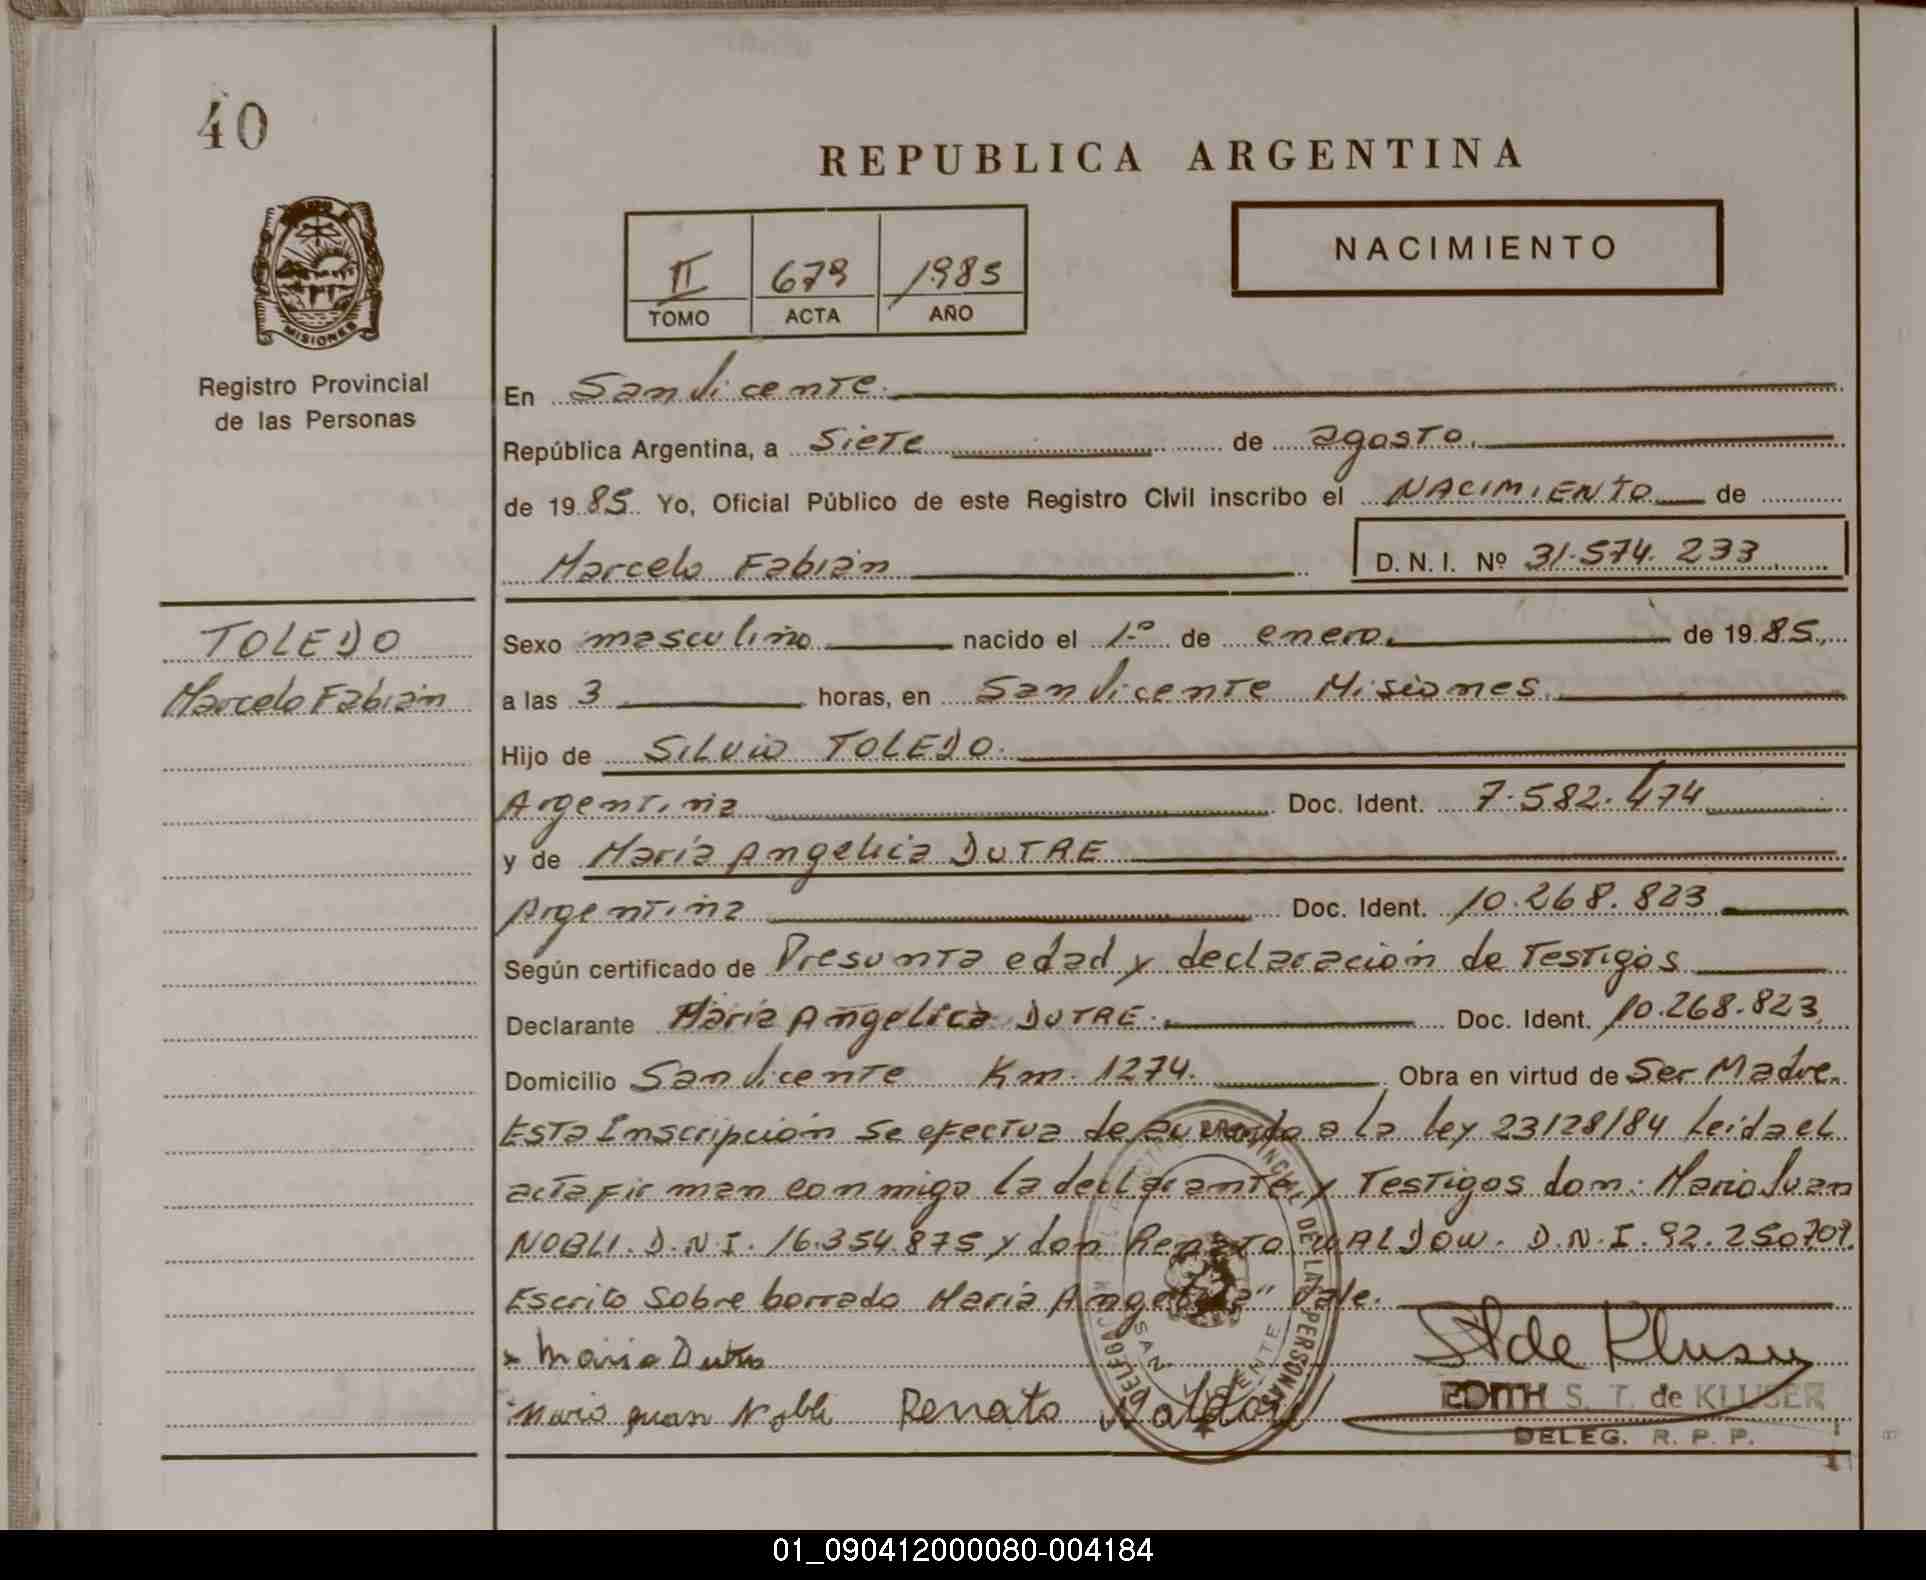 40
REPUBLICA ARGENTINA
NACIMIENTO
II 679 1985
TOMO ACTA AÑO
MISIONES
Registro Provincial
de las Personas
En San Vicente.
República Argentina, a Siete de agosto.
de 1985 Yo, Oficial Público de este Registro Civil inscribo el NACIMIENTO de
Marcelo Fabián D. N. I. Nº 31.574.233
TOLEDO
Marcelo Fabián
Sexo masculino nacido el 1º de enero. de 1985.
a las 3 horas, en San Vicente Misiones.
Hijo de SILVIO TOLEDO.
Argentina Doc. Ident. 7.582.474
y de María Angelica DUTRE
Argentina Doc. Ident. 10.268.823
Según certificado de Presunta edad y declaración de Testigos
Declarante María Angelica DUTRE. Doc. Ident. 10.268.823
Domicilio San Vicente Km. 1274. Obra en virtud de Ser Madre.
Esta Inscripción se efectua de acuerdo a la ley 23128/84 Leida el
acta firman conmigo la declarante y Testigos don: Mario Juan
NOBLI. D.N.I. 16.354.875 y don Renato WALDOW. D.N.I. 92.250709.
Escrito sobre borrado María Angelica" Vale.
x Maria Dutre
Mario Juan Nobli Renato Waldow
EDITH S. T. de KLUSER
DELEG. R. P. P.
SAN VICENTE
01_090412000080-004184